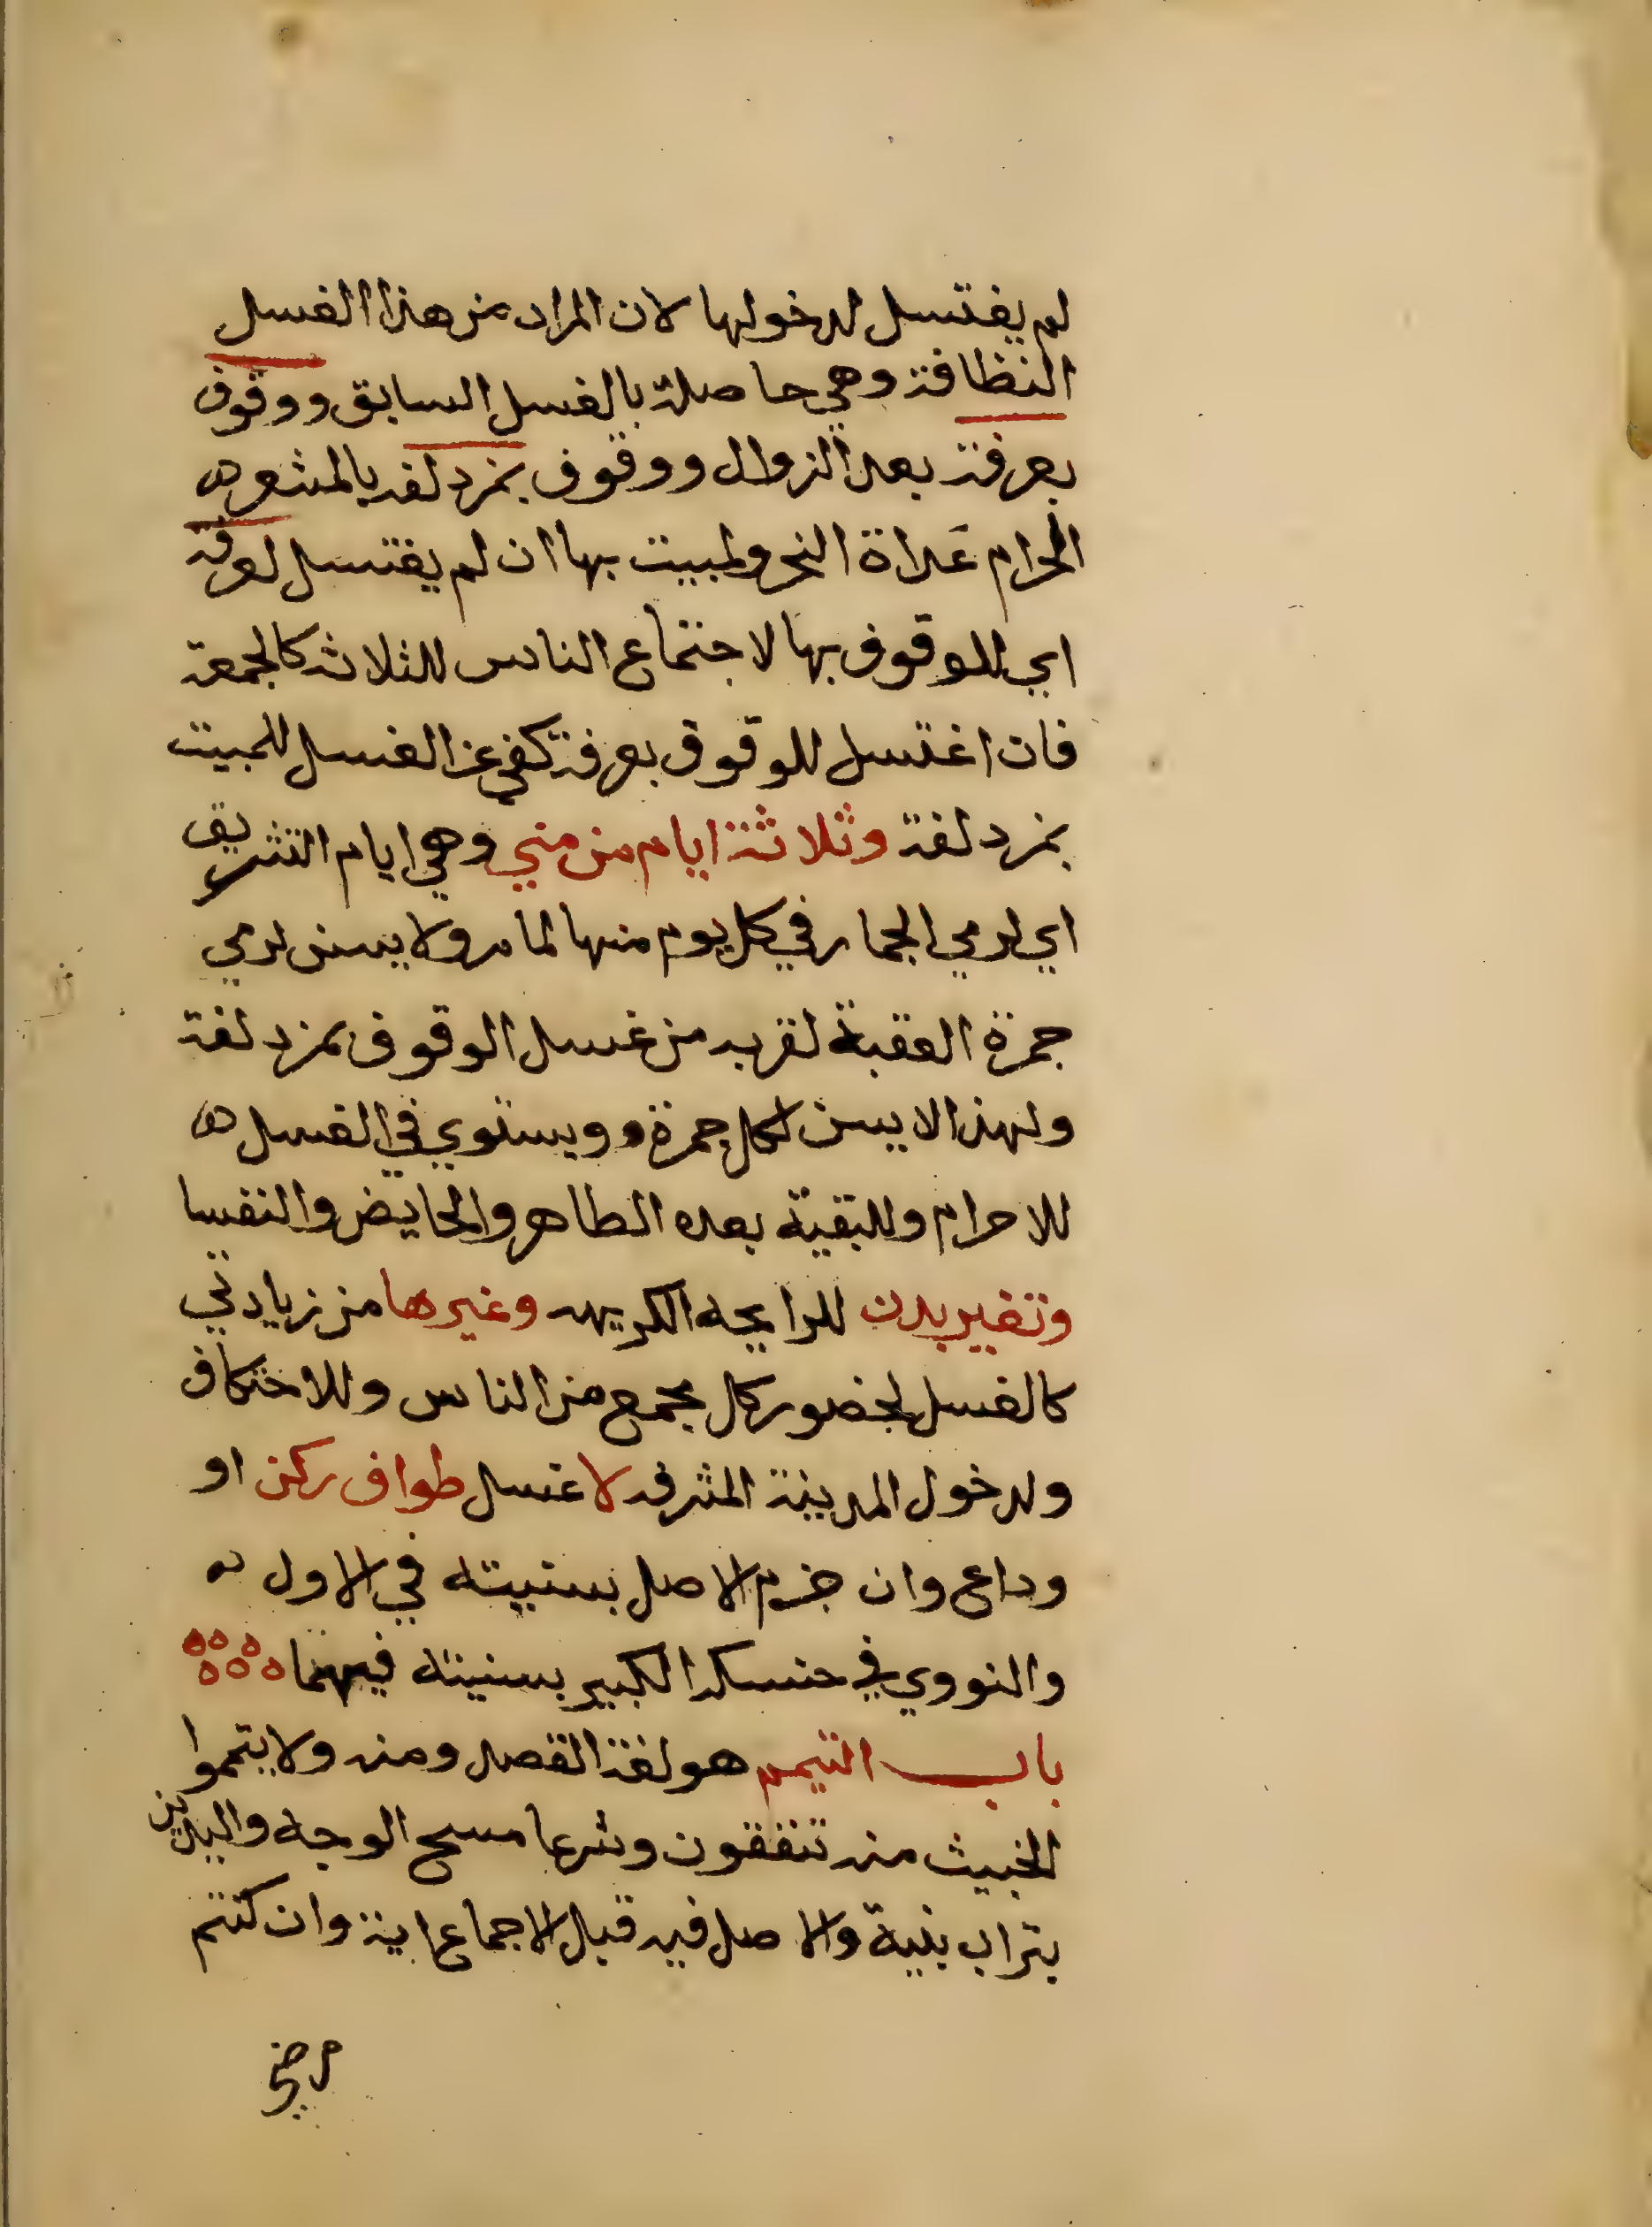 لم يغتسل لدخولها لان المراد من هذا الغسل
النظافة وهي حاصلة بالغسل السابق ووقوف
بعرفة بعد الزوال ووقوف بمزدلفه بالمشعر ه
الحرام غداة النحر ولمبيت بها ان لم يغتسل لعرفة
اي للوقوف بها لاجتماع الناس للثلاثه كالجمعة
فان اغتسل للوقوف بعرفة كفي عن الغسل للمبيت
بمزدلفة وثلاثة ايام من مني وهي ايام التشريق
اي لرمي الجمار في كل يوم منها لما مر ولا يسن لرمي
جمرة العقبة لقربه من غسل الوقوف بمزدلفة
ولهذا لا يسن لكل جمرة ويستوي في الغسل ه
للاحرام وللبقية بعده الطاهر والحايض والنفسا
وتغير بدن للرايحه الكريهه وغيرها من زيادتي
كالغسل لحضور كل مجمع من الناس وللاعتكاف
ولدخول المدينة المشرفه لا غسل طواف ركن او
وداع وان جزم الاصل بسنيته في الاول
والنووي في منسكه الكبير بسنيته فيهما
باب التيمم هو لغة القصد ومنه ولا يتمموا
الخبيث منه تنفقون وشرعا مسح الوجه واليدين
بتراب بنية والاصل فيه قبل الاجماع اية وان كنتم
مرضي